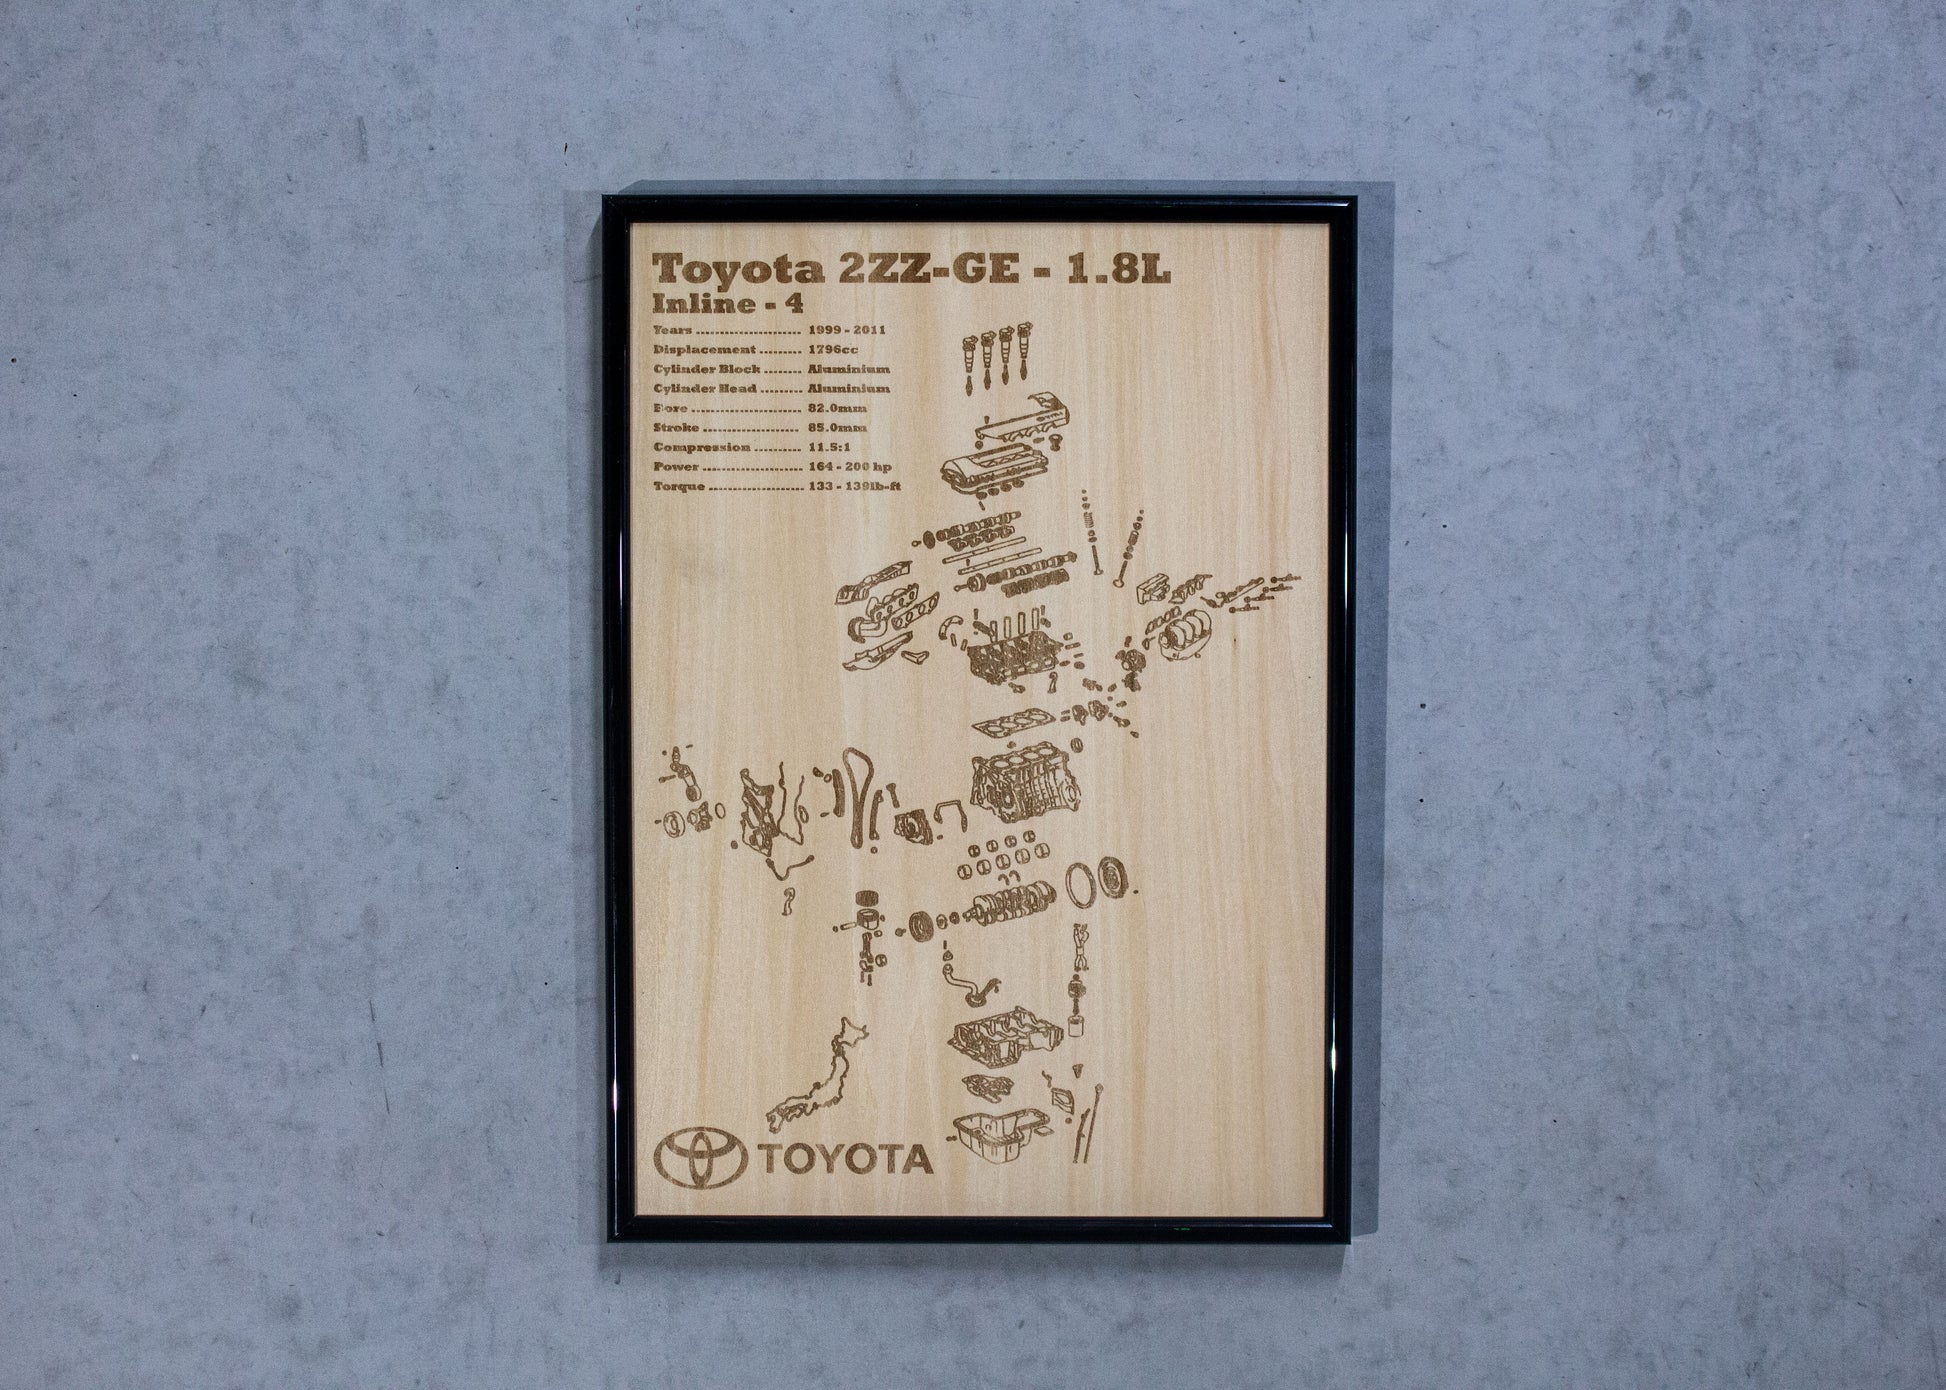 Toyota 2ZZ-GE - 1.8L
Inline - 4
Years ........................ 1999 - 2011
Displacement ......... 1796cc
Cylinder Block ........ Aluminium
Cylinder Head ......... Aluminium
Bore ......................... 82.0mm
Stroke ...................... 85.0mm
Compression .......... 11.5:1
Power ....................... 164 - 200 hp
Torque ..................... 133 - 139lb-ft
TOYOTA